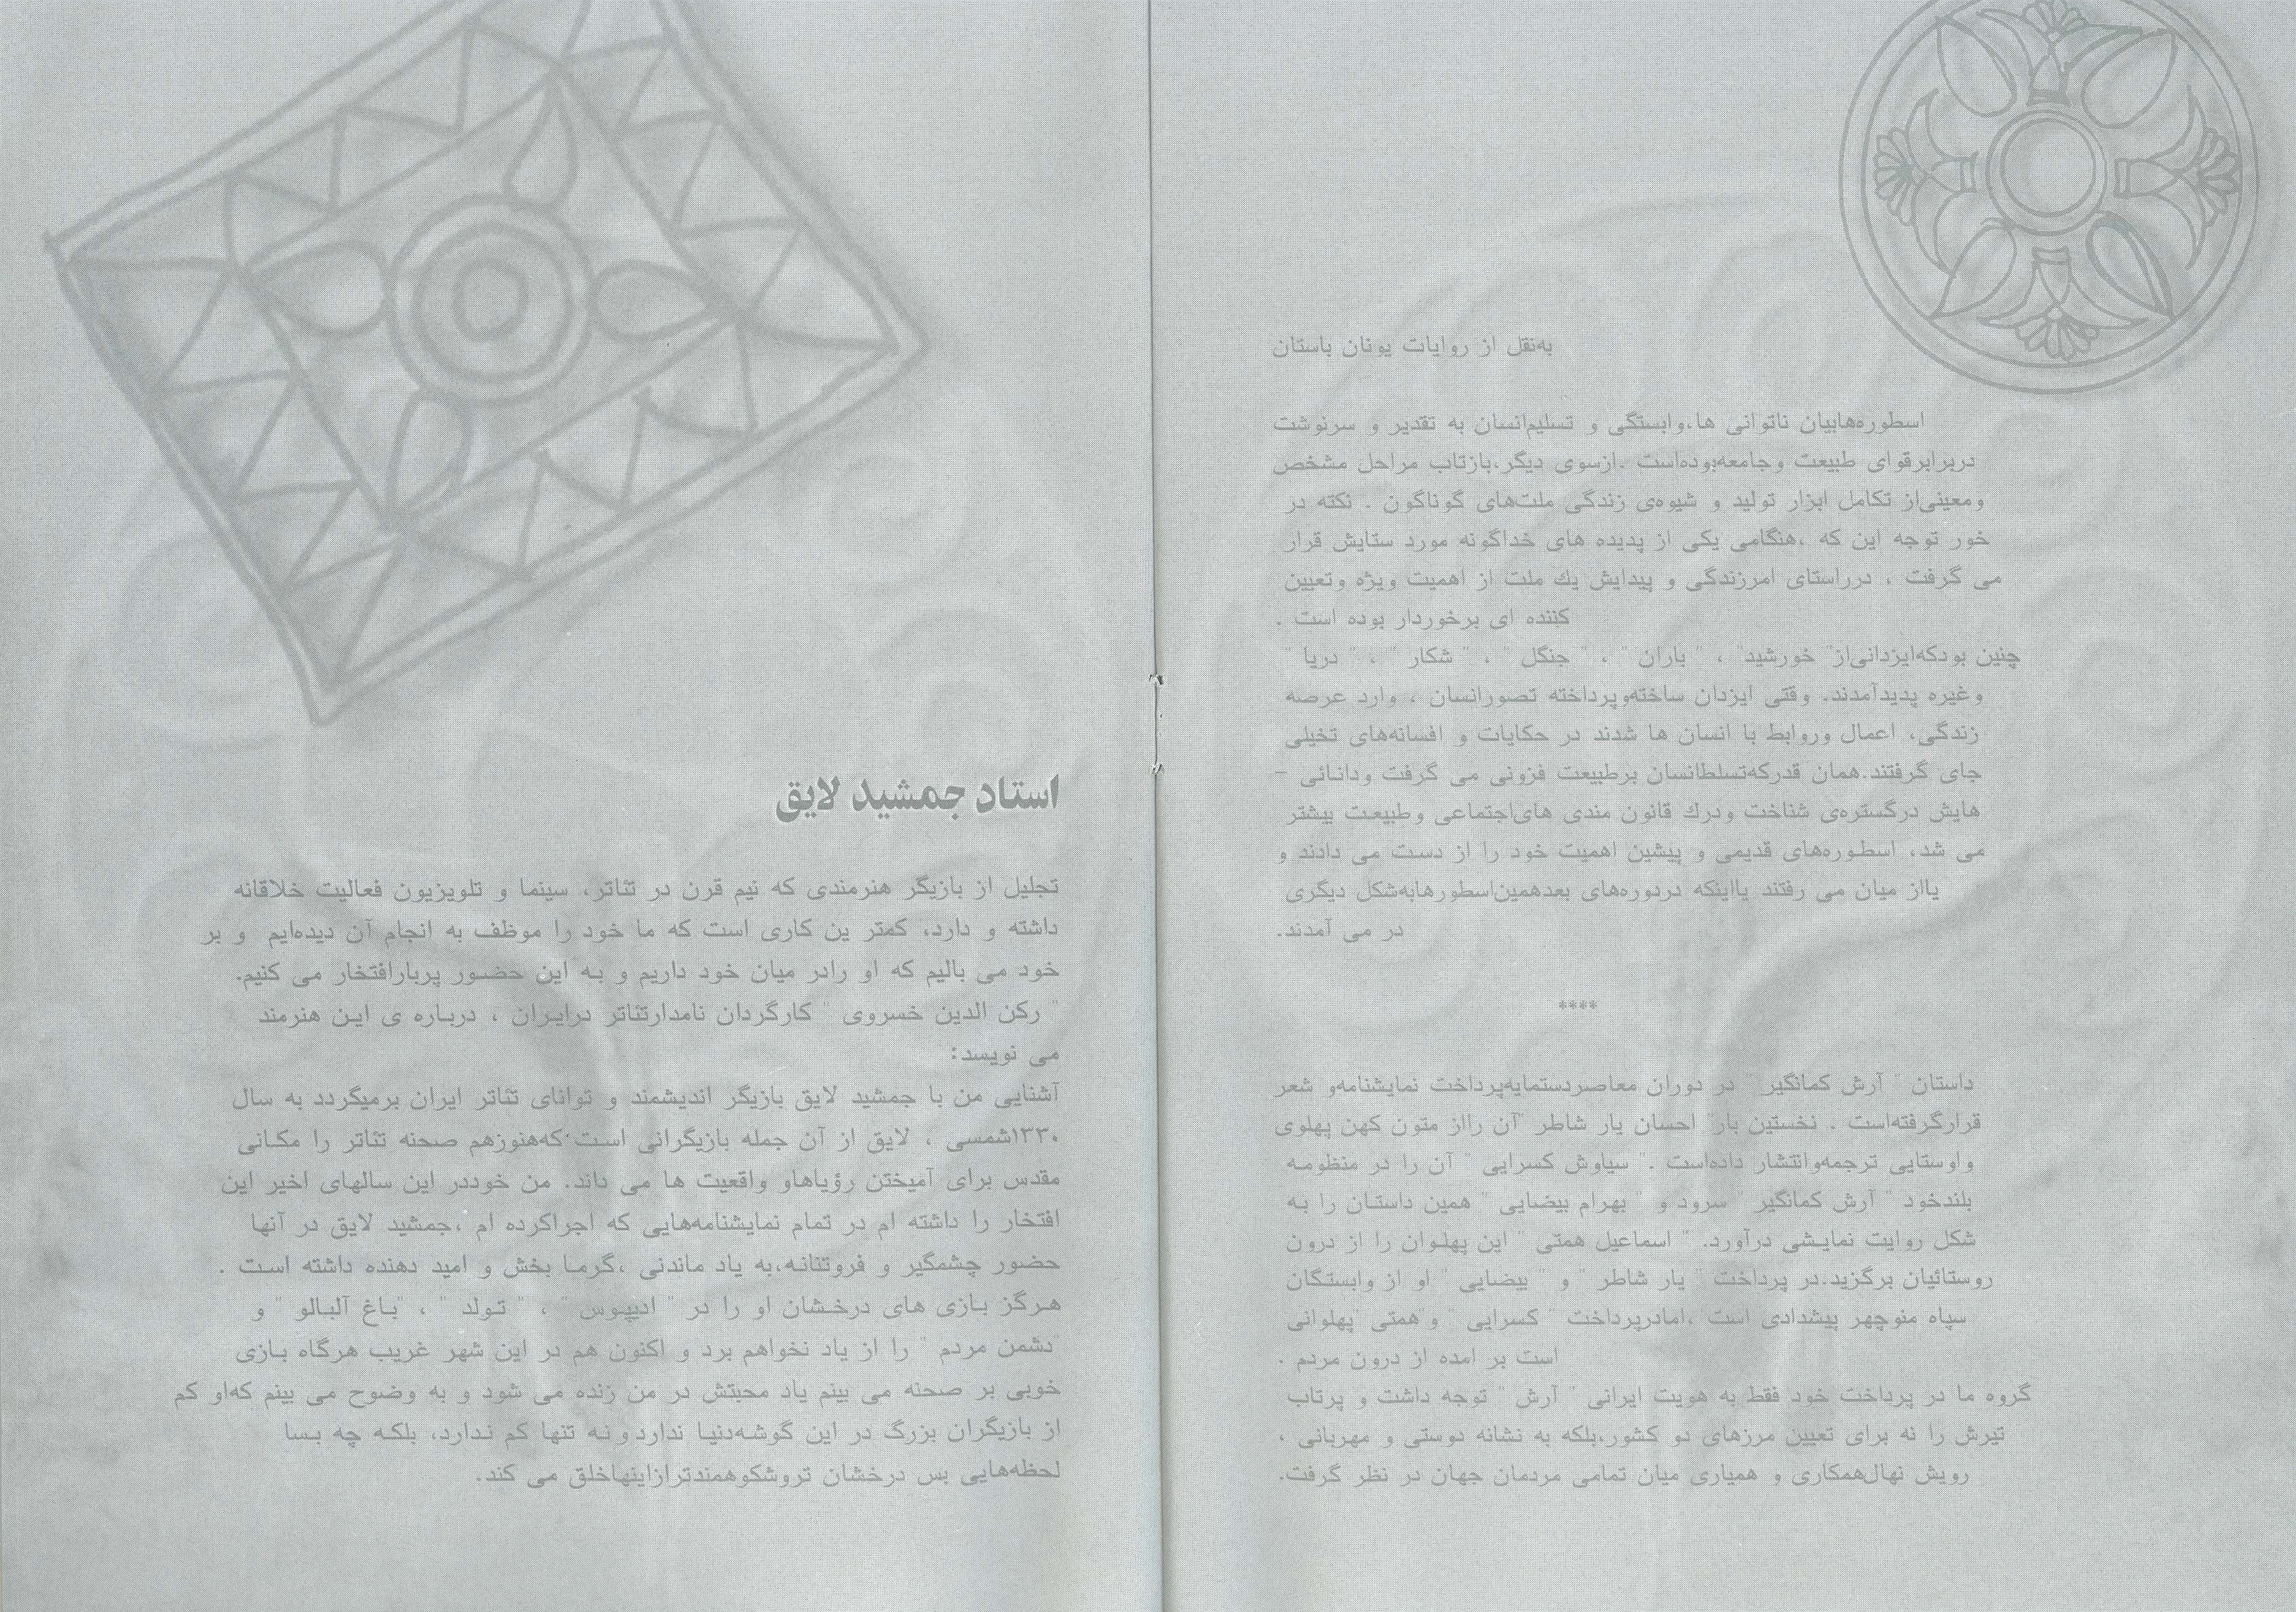 به‌نقل از روایات یونان باستان
اسطوره‌هابیان ناتوانی ها،وابستگی و تسلیم‌انسان به تقدیر و سرنوشت
دربرابرقوای طبیعت وجامعه‌بوده‌است .ازسوی دیگر،بازتاب مراحل مشخص
ومعینی‌از تکامل ابزار تولید و شیوه‌ی زندگی ملت‌های گوناگون . نکته در
خور توجه این که ،هنگامی یکی از پدیده های خداگونه مورد ستایش قرار
می گرفت ، درراستای امرزندگی و پیدایش یك ملت از اهمیت ویژه وتعیین
کننده ای برخوردار بوده است .
چنین بودکه‌ایزدانی‌از" خورشید" ، " باران " ، " جنگل " ، " شکار " ، " دریا "
وغیره پدیدآمدند. وقتی ایزدان ساخته‌وپرداخته تصورانسان ، وارد عرصه
زندگی، اعمال وروابط با انسان ها شدند در حکایات و افسانه‌های تخیلی
جای گرفتند.همان قدرکه‌تسلط‌انسان برطبیعت فزونی می گرفت ودانائی –
هایش درگستره‌ی شناخت ودرك قانون مندی های‌اجتماعی وطبیعت بیشتر
می شد، اسطوره‌های قدیمی و پیشین اهمیت خود را از دست می دادند و
یااز میان می رفتند یااینکه دردوره‌های بعدهمین‌اسطورهابه‌شکل دیگری
در می آمدند.
****
داستان " آرش کمانگیر " در دوران معاصردستمایه‌پرداخت نمایشنامه‌و شعر
قرارگرفته‌است . نخستین بار" احسان یار شاطر "آن رااز متون کهن پهلوی
واوستایی ترجمه‌وانتشار داده‌است ." سیاوش کسرایی " آن را در منظومه
بلندخود " آرش کمانگیر " سرود و " بهرام بیضایی " همین داستان را به
شکل روایت نمایشی درآورد. " اسماعیل همتی " این پهلوان را از درون
روستائیان برگزید.در پرداخت " یار شاطر " و " بیضایی " او از وابستگان
سپاه منوچهر پیشدادی است ،امادرپرداخت " کسرایی " و"همتی "پهلوانی
است بر امده از درون مردم .
گروه ما در پرداخت خود فقط به هویت ایرانی " آرش " توجه داشت و پرتاب
تیرش را نه برای تعیین مرزهای دو کشور،بلکه به نشانه دوستی و مهربانی ،
رویش نهال‌همکاری و همیاری میان تمامی مردمان جهان در نظر گرفت.
استاد جمشید لایق
تجلیل از بازیگر هنرمندی که نیم قرن در تئاتر، سینما و تلویزیون فعالیت خلاقانه
داشته و دارد، کمتر ین کاری است که ما خود را موظف به انجام آن دیده‌ایم و بر
خود می بالیم که او رادر میان خود داریم و به این حضور پربارافتخار می کنیم.
" رکن الدین خسروی " کارگردان نامدارتئاتر درایران ، درباره ی این هنرمند
می نویسد:
آشنایی من با جمشید لایق بازیگر اندیشمند و توانای تئاتر ایران برمیگردد به سال
۱۳۳۰شمسی ، لایق از آن جمله بازیگرانی است که‌هنوزهم صحنه تئاتر را مکانی
مقدس برای آمیختن رؤیاهاو واقعیت ها می داند. من خوددر این سالهای اخیر این
افتخار را داشته ام در تمام نمایشنامه‌هایی که اجراکرده ام ،جمشید لایق در آنها
حضور چشمگیر و فروتنانه،به یاد ماندنی ،گرما بخش و امید دهنده داشته است .
هرگز بازی های درخشان او را در " ادیپوس " ، " تولد " ، "باغ آلبالو " و
"دشمن مردم " را از یاد نخواهم برد و اکنون هم در این شهر غریب هرگاه بازی
خوبی بر صحنه می بینم یاد محبتش در من زنده می شود و به وضوح می بینم که‌او کم
از بازیگران بزرگ در این گوشه‌دنیا نداردو نه تنها کم ندارد، بلکه چه بسا
لحظه‌هایی بس درخشان تروشکوهمندترازاینهاخلق می کند.